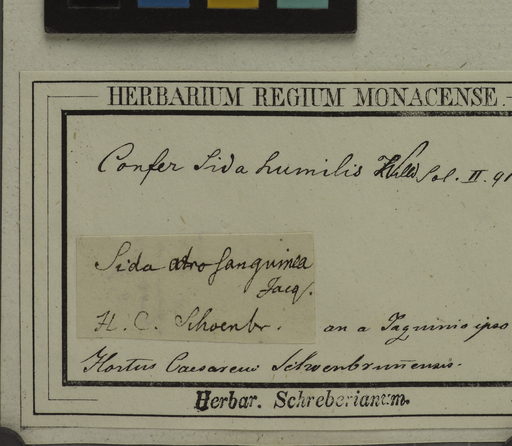 HERBARIUM REGIUM MONACENSE.
Confer Sida humilis Willd Sol. II. 91
Sida atrosanguinea
Jacq.
H. C. Schoenbr.
an a Jaquinio ipso
Hortus Caesareus Schoenbrunnensis.
Herbar. Schreberianum.